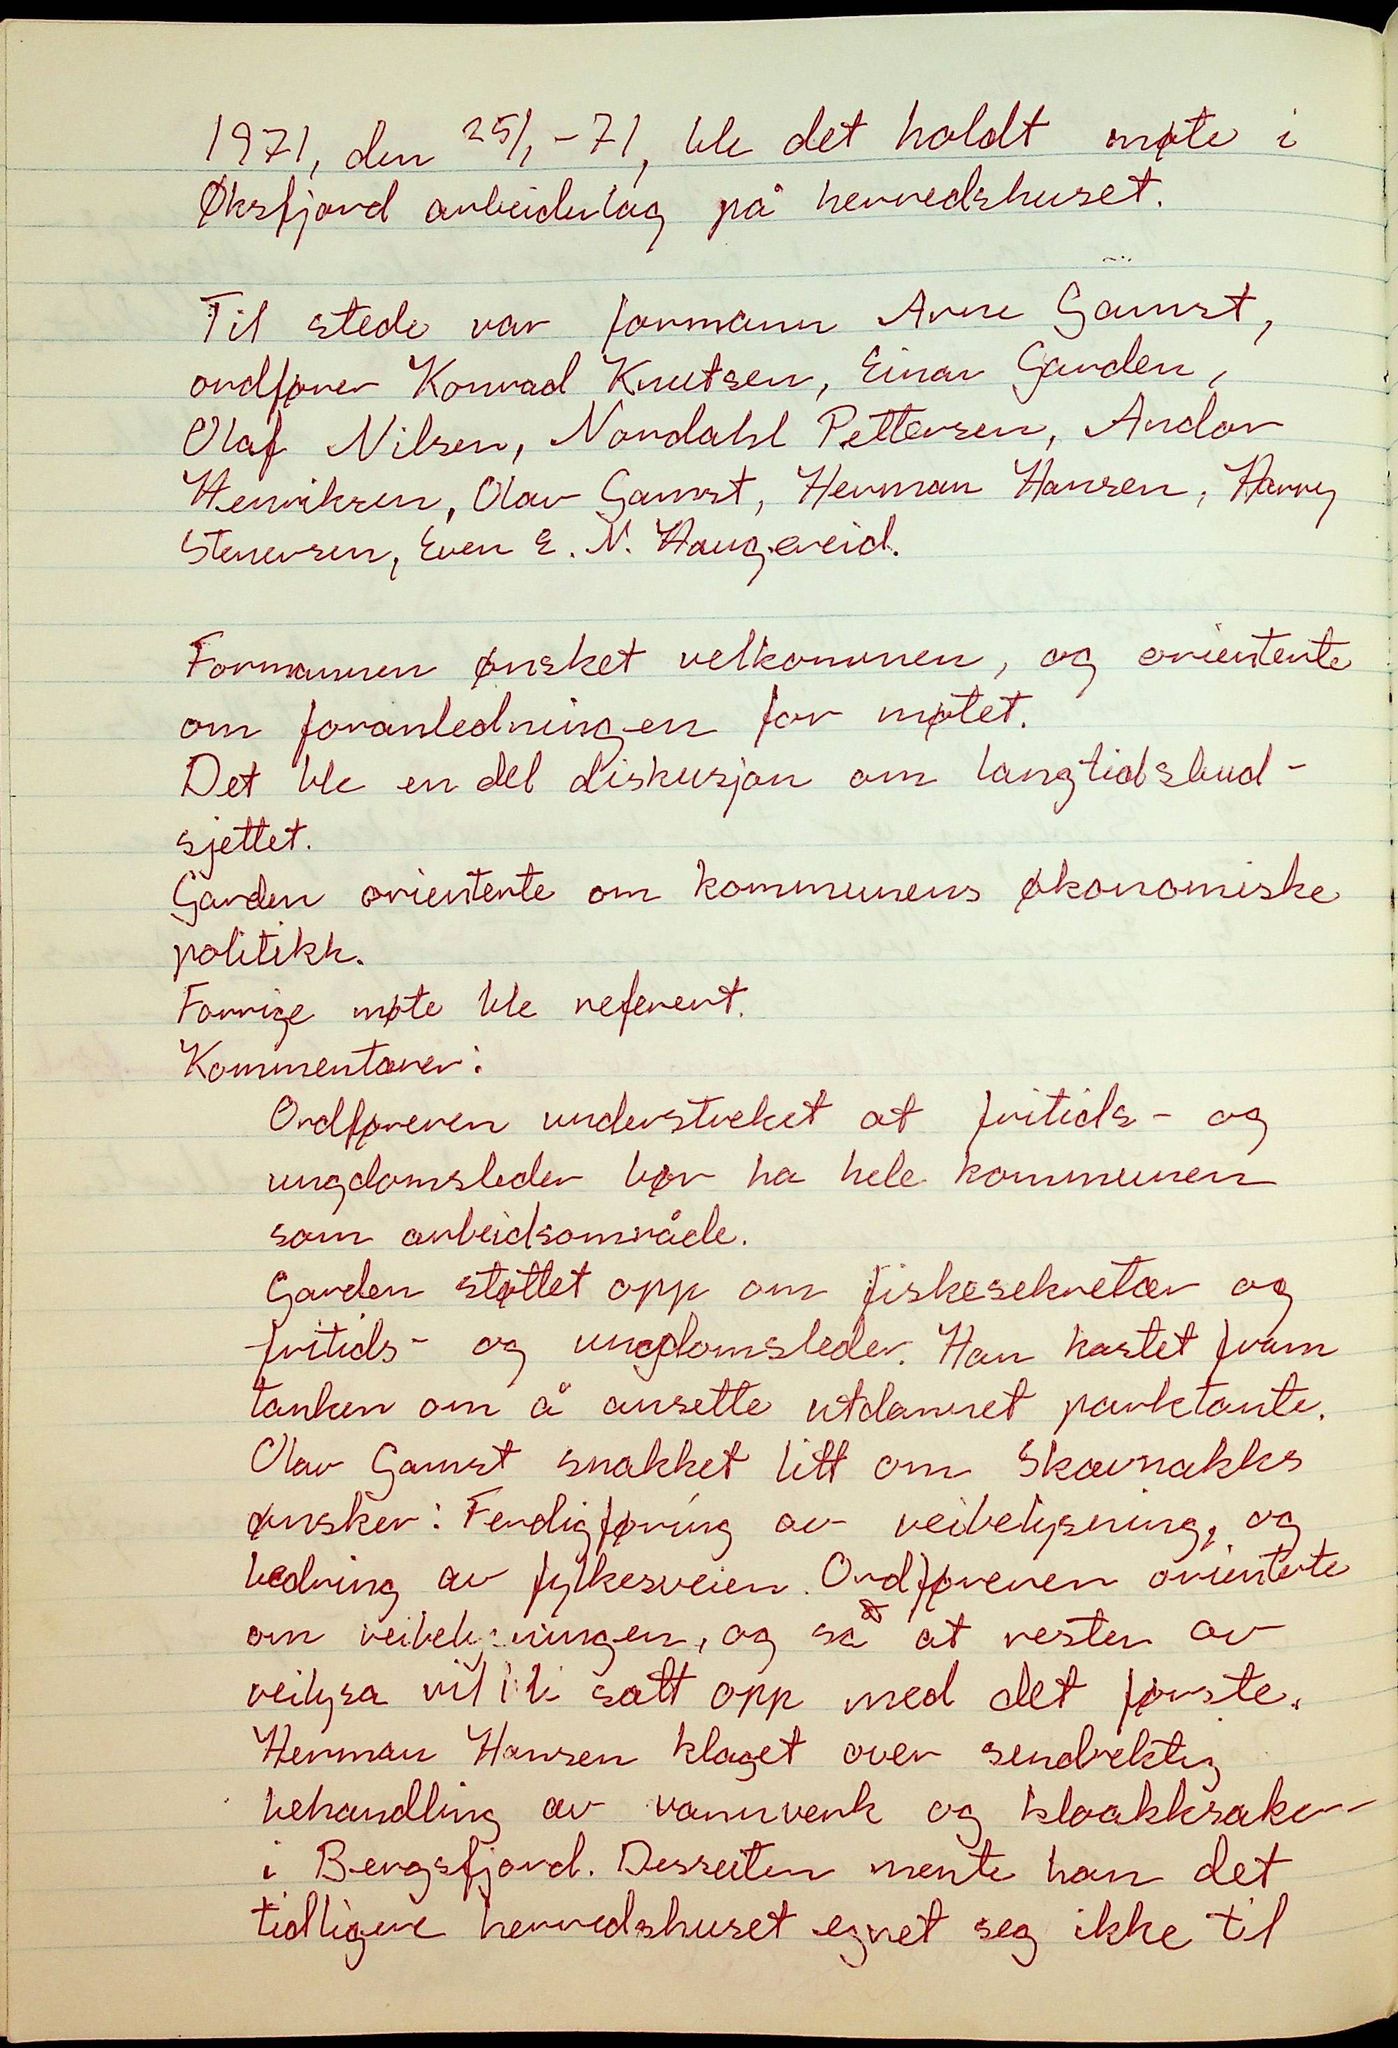 1971, den 25/1 -71, ble det holdt møte i
Øksfjord arbeiderlag på herredshuset.
Til stede var formann Arne Gamst,
ordfører Konrad Knutsen, Einar Garden,
Olaf Nilsen, Nordahl Pettersen, Andor
Henriksen, Olav Gamst, Herman Hansen, Harry
Stenersen, Even E. N. Haugereid.
Formannen ønsket velkommen, og orienterte
om foranledningen for møtet.
Det ble en del diskusjon om langtidsbud-
sjettet.
Garden orienterte om kommunens økonomiske
politikk.
Forrige møte ble referert.
Kommentarer:
Ordføreren understreket at fritids- og
ungdomsleder bør ha hele kommunen
som arbeidsområde.
Garden støttet opp om fiskesekretær og
fritids- og ungdomsleder. Han kastet fram
tanken om å ansette utdannet parktante.
Olav Gamst snakket litt om Skavnakks
ønsker: Ferdigføring av veibelysning, og
bedring av fylkesveien. Ordføreren orienterte
om veibelysningen, og sa at resten av
veilysa vil bli satt opp med det første.
Herman Hansen klaget over sendrektig
behandling av vannverk og kloakksaker
i Bergsfjord. Dessuten mente han det
tidligere herredshuset egnet seg ikke til